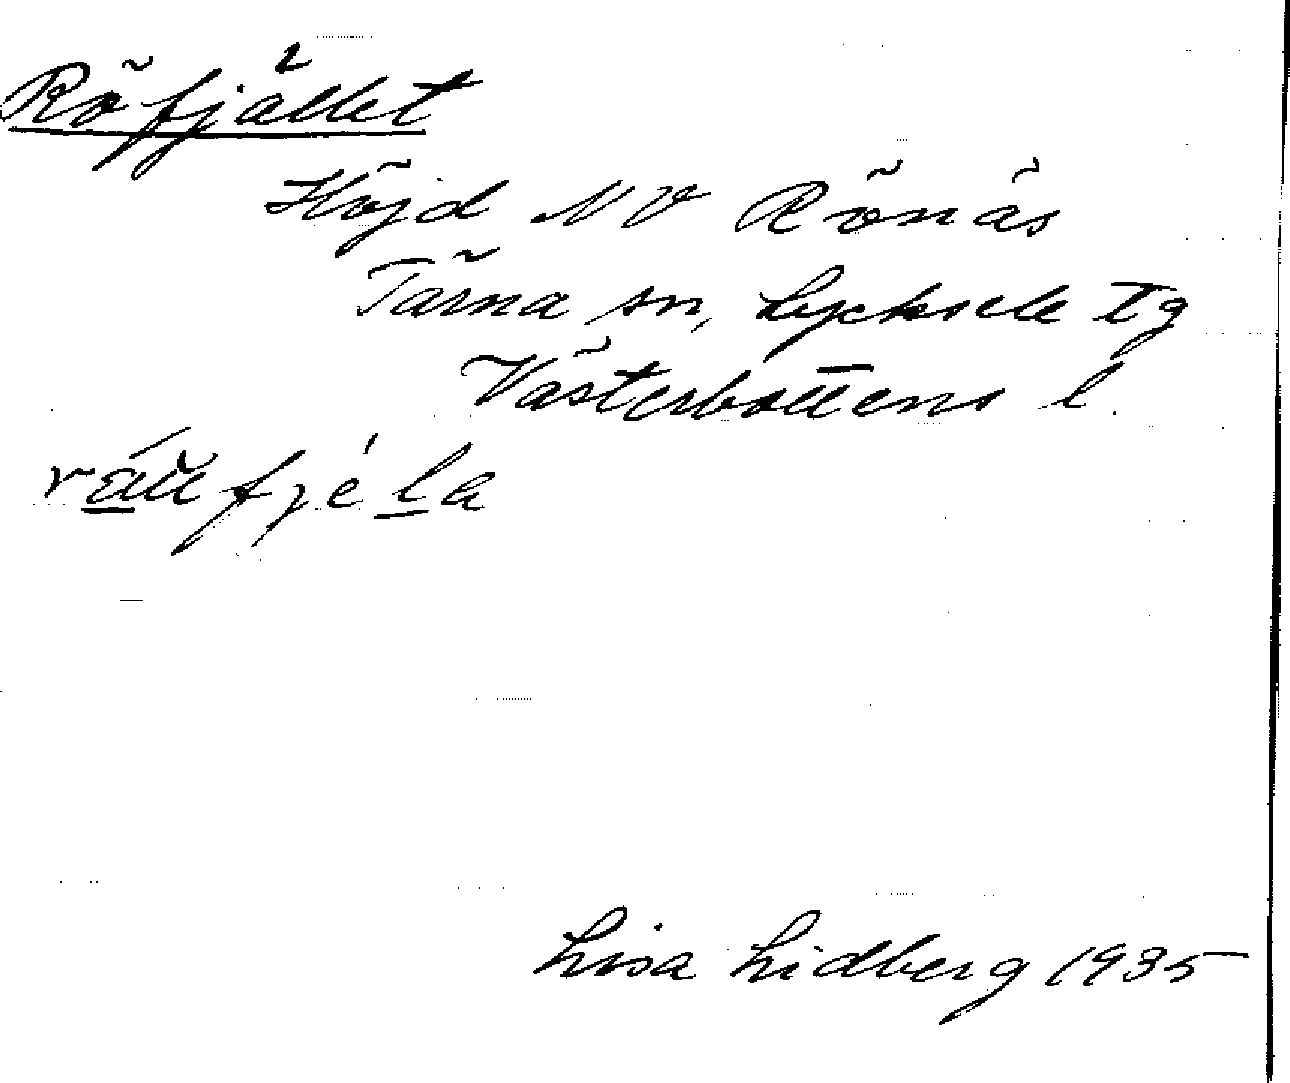 Röfjället
Höjd NV Rönäs
Tärna sn, Lycksele tg
Västerbottens l.
ráu̯fjé l̲a
Lisa Lidberg 1935